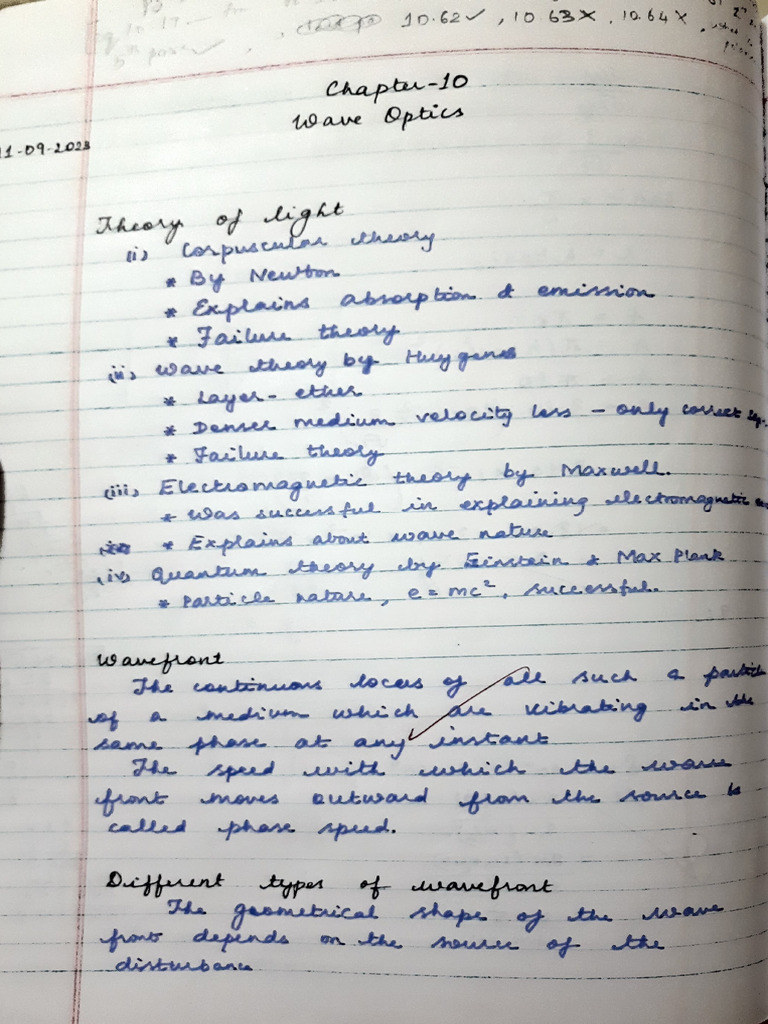 10.62✓, 10.63×, 10.64×,
Chapter-10
Wave Optics
11-09-2023
Theory of light
(i) Corpuscular theory
* By Newton
* Explains absorption & emission
* Failure theory
(ii) Wave theory by Huygens
* Layer - ether
* Denser medium velocity less - only correct
* Failure theory
(iii) Electromagnetic theory by Maxwell.
* Was successful in explaining electromagnetic
* Explains about wave nature
(iv) Quantum theory by Einstein & Max Plank
* Particle nature, e=mc², successful.
Wavefront
The continuous locus of all such a particle
of a medium which are vibrating in the
same phase at any instant
The speed with which the wave
front moves outward from the source is
called phase speed.
Different types of wavefront
The geometrical shape of the wave
front depends on the source of the
disturbance